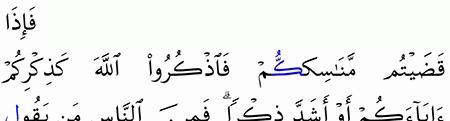 فَإِذَا
قَضَيْتُم مَّنَٰسِككُّمْ فَٱذْكُرُوا۟ ٱللَّهَ كَذِكْرِكُمْ
ءَابَآءَكُمْ أَوْ أَشَدَّ ذِكْرًا ۗ فَمِنَ ٱلنَّاسِ مَن يَقُول